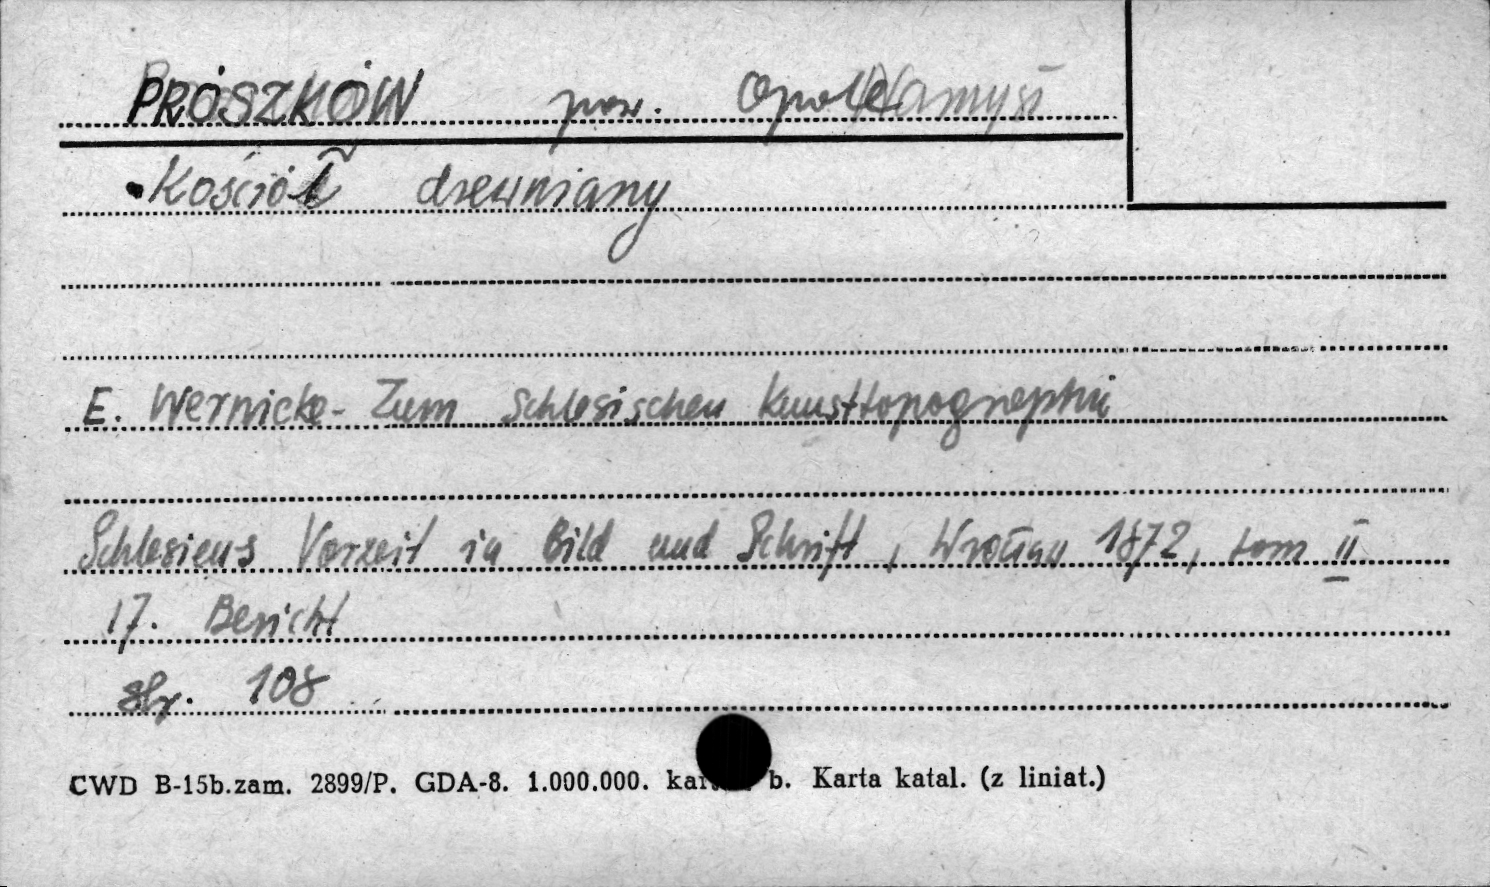 PRÓSZKÓW pow. Opole
Kościół drewniany
E. Wernicke - Zum Schlesischen Kunsttopographie
Schlesiens Vorzeit in Bild und Schrift, Wrocław 1872, tom II
17. Bericht
str. 108
CWD B-15b.zam. 2899/P. GDA-8. 1.000.000. b. Karta katal. (z liniat.)